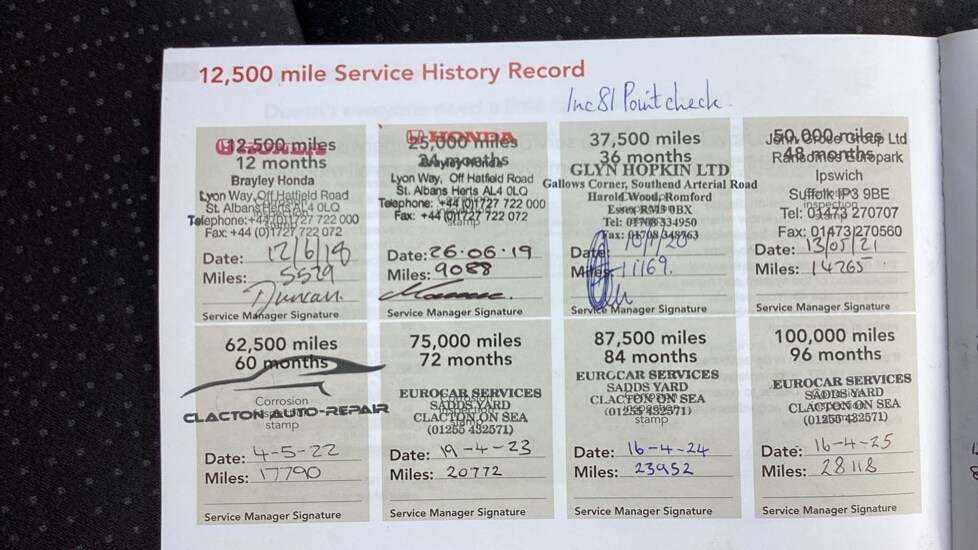 12,500 mile Service History Record
Inc 81 Point check.
12,500 miles
12 months
Brayley Honda
Lyon Way, Off Hatfield Road
St. Albans Herts AL4 0LQ
Telephone: +44 (0)1727 722 000
Fax: +44 (0)1727 722 072
Date: 12/6/18
Miles: 5529
Duncan.
Service Manager Signature
HONDA
25,000 miles
24 months
Brayley Honda
Lyon Way, Off Hatfield Road
St. Albans Herts AL4 0LQ
Telephone: +44 (0)1727 722 000
Fax: +44 (0)1727 722 072
stamp
Date: 26.06.19
Miles: 9088
Service Manager Signature
37,500 miles
36 months
GLYN HOPKIN LTD
Gallows Corner, Southend Arterial Road
Harold Wood, Romford
Essex RM3 0BX
Tel: 01708 334950
Fax: 01708 348763
Date: 10/1/20
Miles: 11169.
Service Manager Signature
50,000 miles
48 months
John Grose Group Ltd
Ransomes Europark
Ipswich
Suffolk IP3 9BE
Tel: 01473 270707
Fax: 01473 270560
Date: 13/05/21
Miles: 14265
Service Manager Signature
62,500 miles
60 months
Corrosion
CLACTON AUTO-REPAIR
stamp
Date: 4-5-22
Miles: 17790
Service Manager Signature
75,000 miles
72 months
EUROCAR SERVICES
SADDS YARD
CLACTON ON SEA
(01255 432571)
Date: 19-4-23
Miles: 20772
Service Manager Signature
87,500 miles
84 months
EUROCAR SERVICES
SADDS YARD
CLACTON ON SEA
(01255 432571)
stamp
Date: 16-4-24
Miles: 23952
Service Manager Signature
100,000 miles
96 months
EUROCAR SERVICES
SADDS YARD
CLACTON ON SEA
(01255 432571)
Date: 16-4-25
Miles: 28118
Service Manager Signature